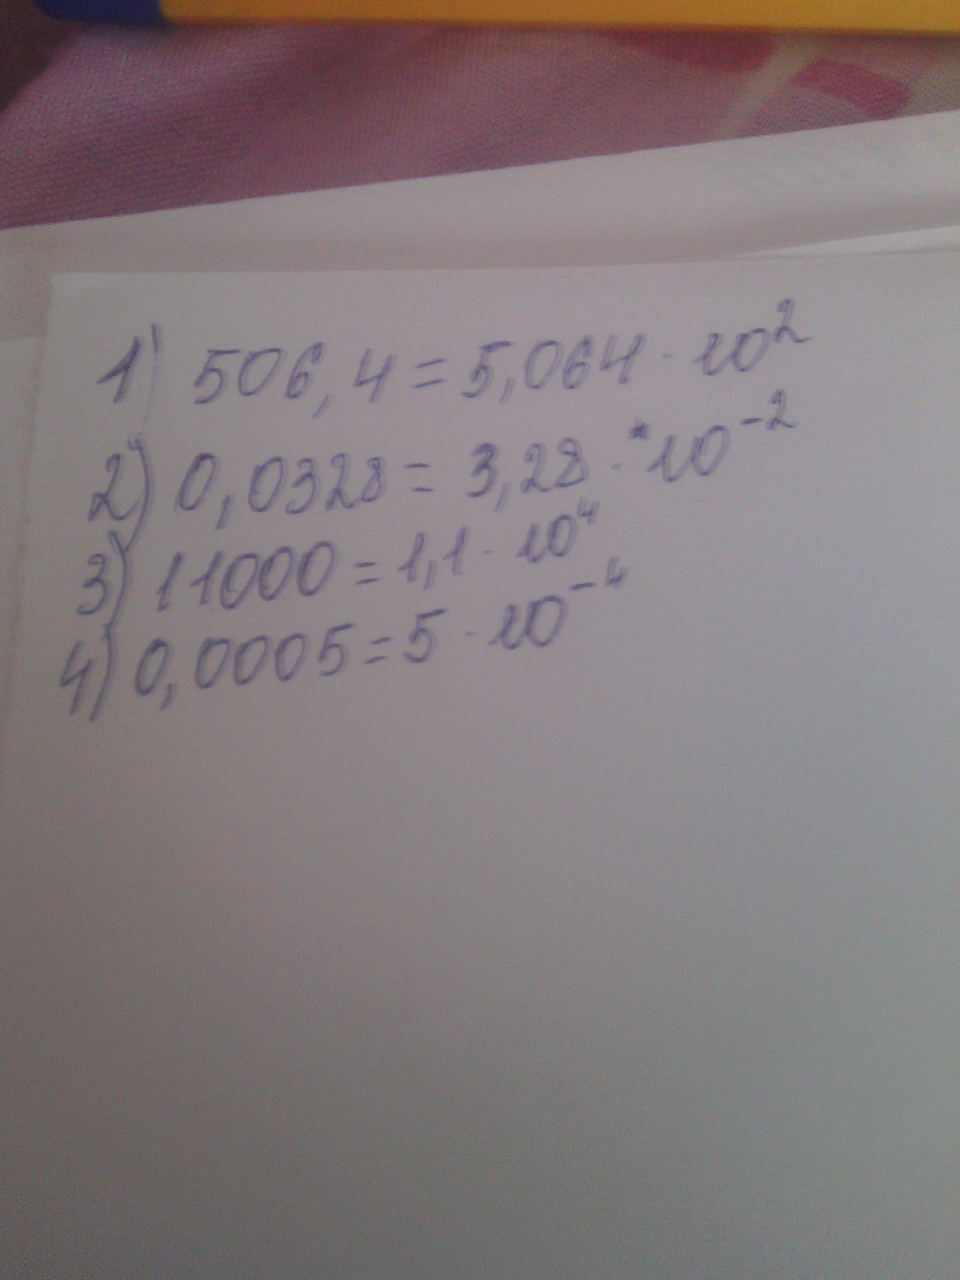 1) 506,4 = 5,064 · 10²
2) 0,0328 = 3,28 · 10⁻²
3) 11000 = 1,1 · 10⁴
4) 0,0005 = 5 · 10⁻⁴